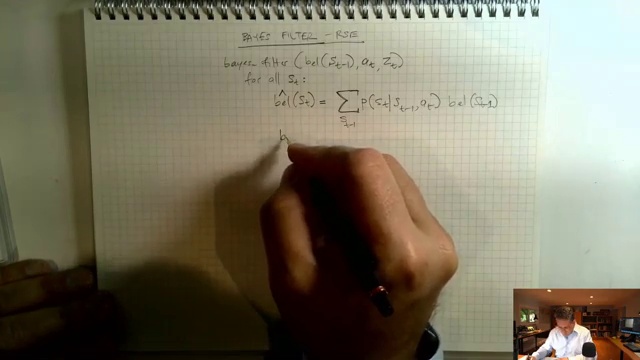 BAYES FILTER - RSE
bayes filter (bel(S_{t-1}), a_t, z_t)
for all S_t:
b̂el(S_t) = ∑_{S_{t-1}} P(S_t | S_{t-1}, a_t) bel(S_{t-1})
b